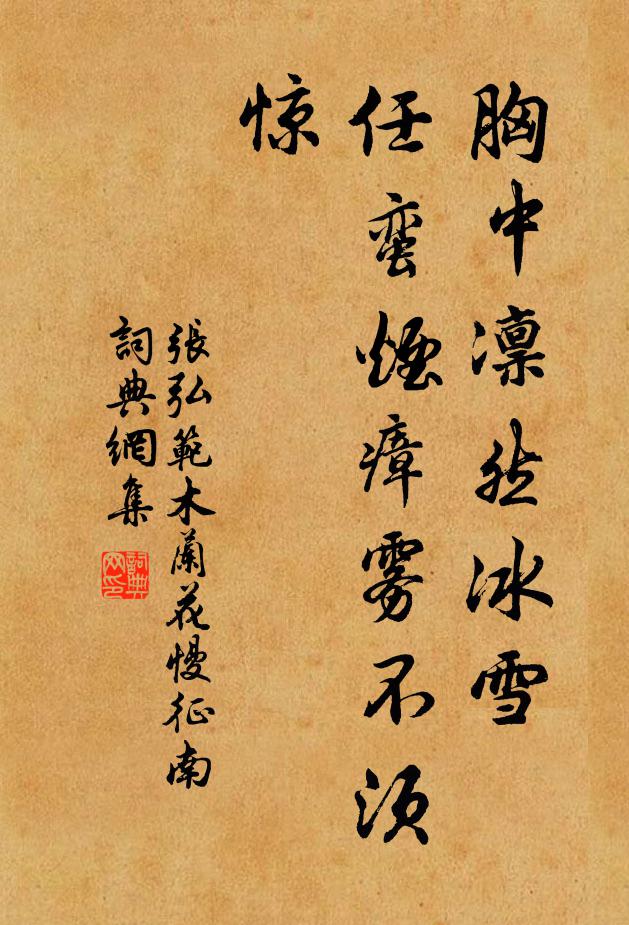 胸中凛然冰雪
任蛮煙瘴雾不须
惊
張弘範木蘭花慢征南
詞典網集
詞典
网印